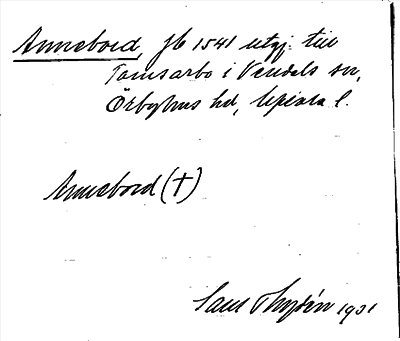 Annebord, jb 1541 utgj. till
Tomsarbo i Vendels sn,
Örbyhus hd, Uppsala l.
Annebord (†)
1931